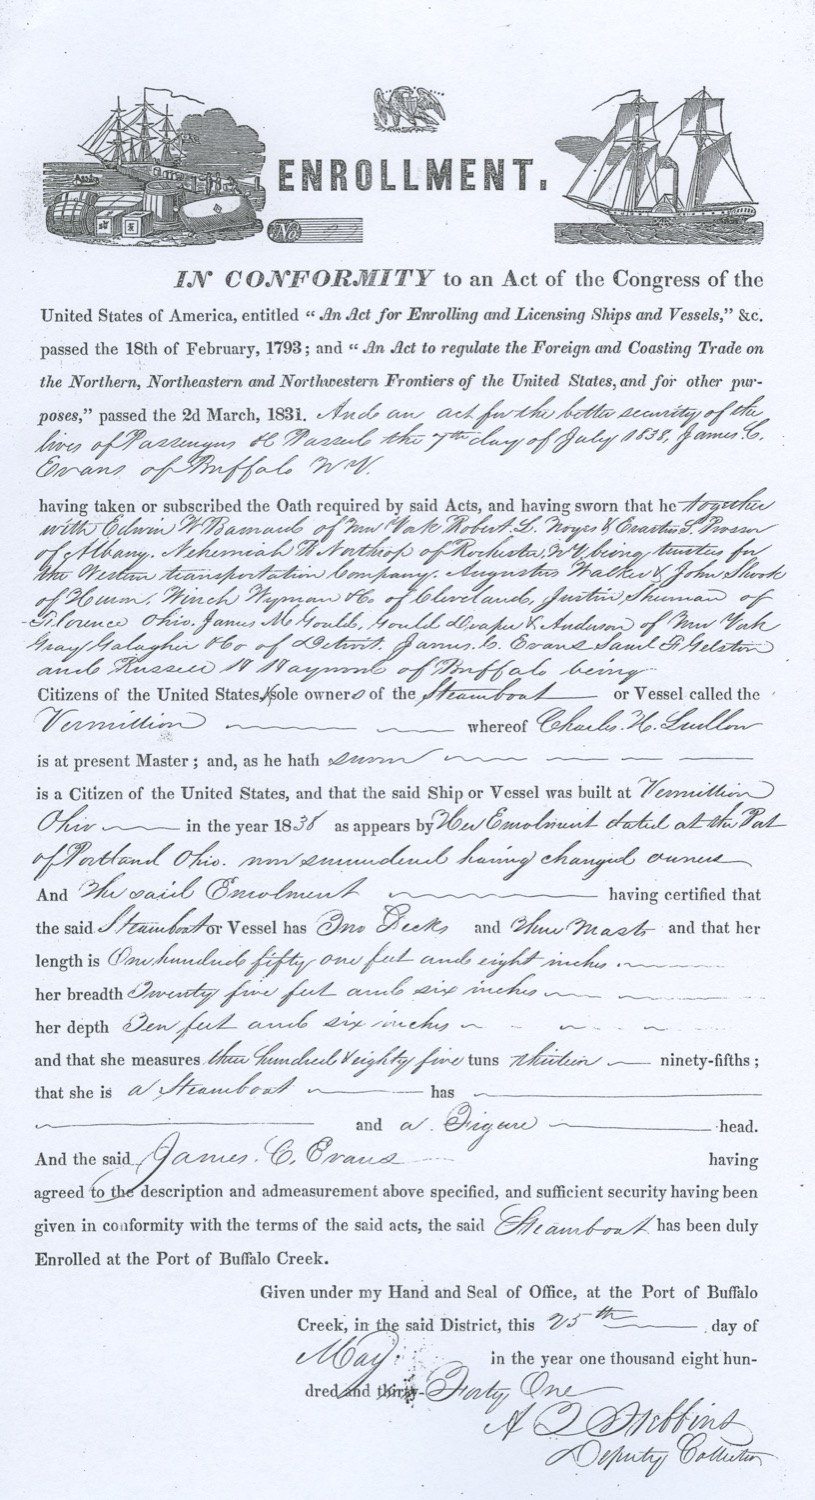 ENROLLMENT.
No.
IN CONFORMITY to an Act of the Congress of the
United States of America, entitled “An Act for Enrolling and Licensing Ships and Vessels,” &c.
passed the 18th of February, 1793; and “An Act to regulate the Foreign and Coasting Trade on
the Northern, Northeastern and Northwestern Frontiers of the United States, and for other pur-
poses,” passed the 2d March, 1831. And an act for the better security of the
lives of Passengers &c Passed the 7th day of July 1838, James C.
Evans of Buffalo N Y.
having taken or subscribed the Oath required by said Acts, and having sworn that he together
with Edwin W Barnard of New York Robert L. Noyes & Erastus S. Prosser
of Albany. Nehemiah Northrop of Rochester, NY, being trustees for
the Western transportation Company. Augustus Walker & John Shook
of Huron, Winch Wyman &Co of Cleveland, Justin Sherman of
Florence Ohio, James McGould, Gould Draper & Anderson of New York
Gray Galagher &Co of Detroit. James C. Evans Saml F Gelston
and Russell H Haywood of Buffalo being
Citizens of the United States, sole owners of the Steamboat or Vessel called the
Vermillion whereof Charles H. Ludlow
is at present Master; and, as he hath sworn
is a Citizen of the United States, and that the said Ship or Vessel was built at Vermillion
Ohio in the year 1838 as appears by Her Enrolment dated at the Port
of Portland Ohio. now surrendered having changed owners
And The said Enrolment having certified that
the said Steamboat or Vessel has Two Decks and Three Masts and that her
length is One hundred fifty one feet and eight inches.
her breadth Twenty five feet and six inches
her depth Ten feet and six inches
and that she measures three hundred & eighty five tuns thirteen ninety-fifths;
that she is a Steamboat has
and a Figure head.
And the said James. C. Evans having
agreed to the description and admeasurement above specified, and sufficient security having been
given in conformity with the terms of the said acts, the said Steamboat has been duly
Enrolled at the Port of Buffalo Creek.
Given under my Hand and Seal of Office, at the Port of Buffalo
Creek, in the said District, this 25th day of
May. in the year one thousand eight hun-
dred and thirty- Forty One
A Q Stebbins
Deputy Collector